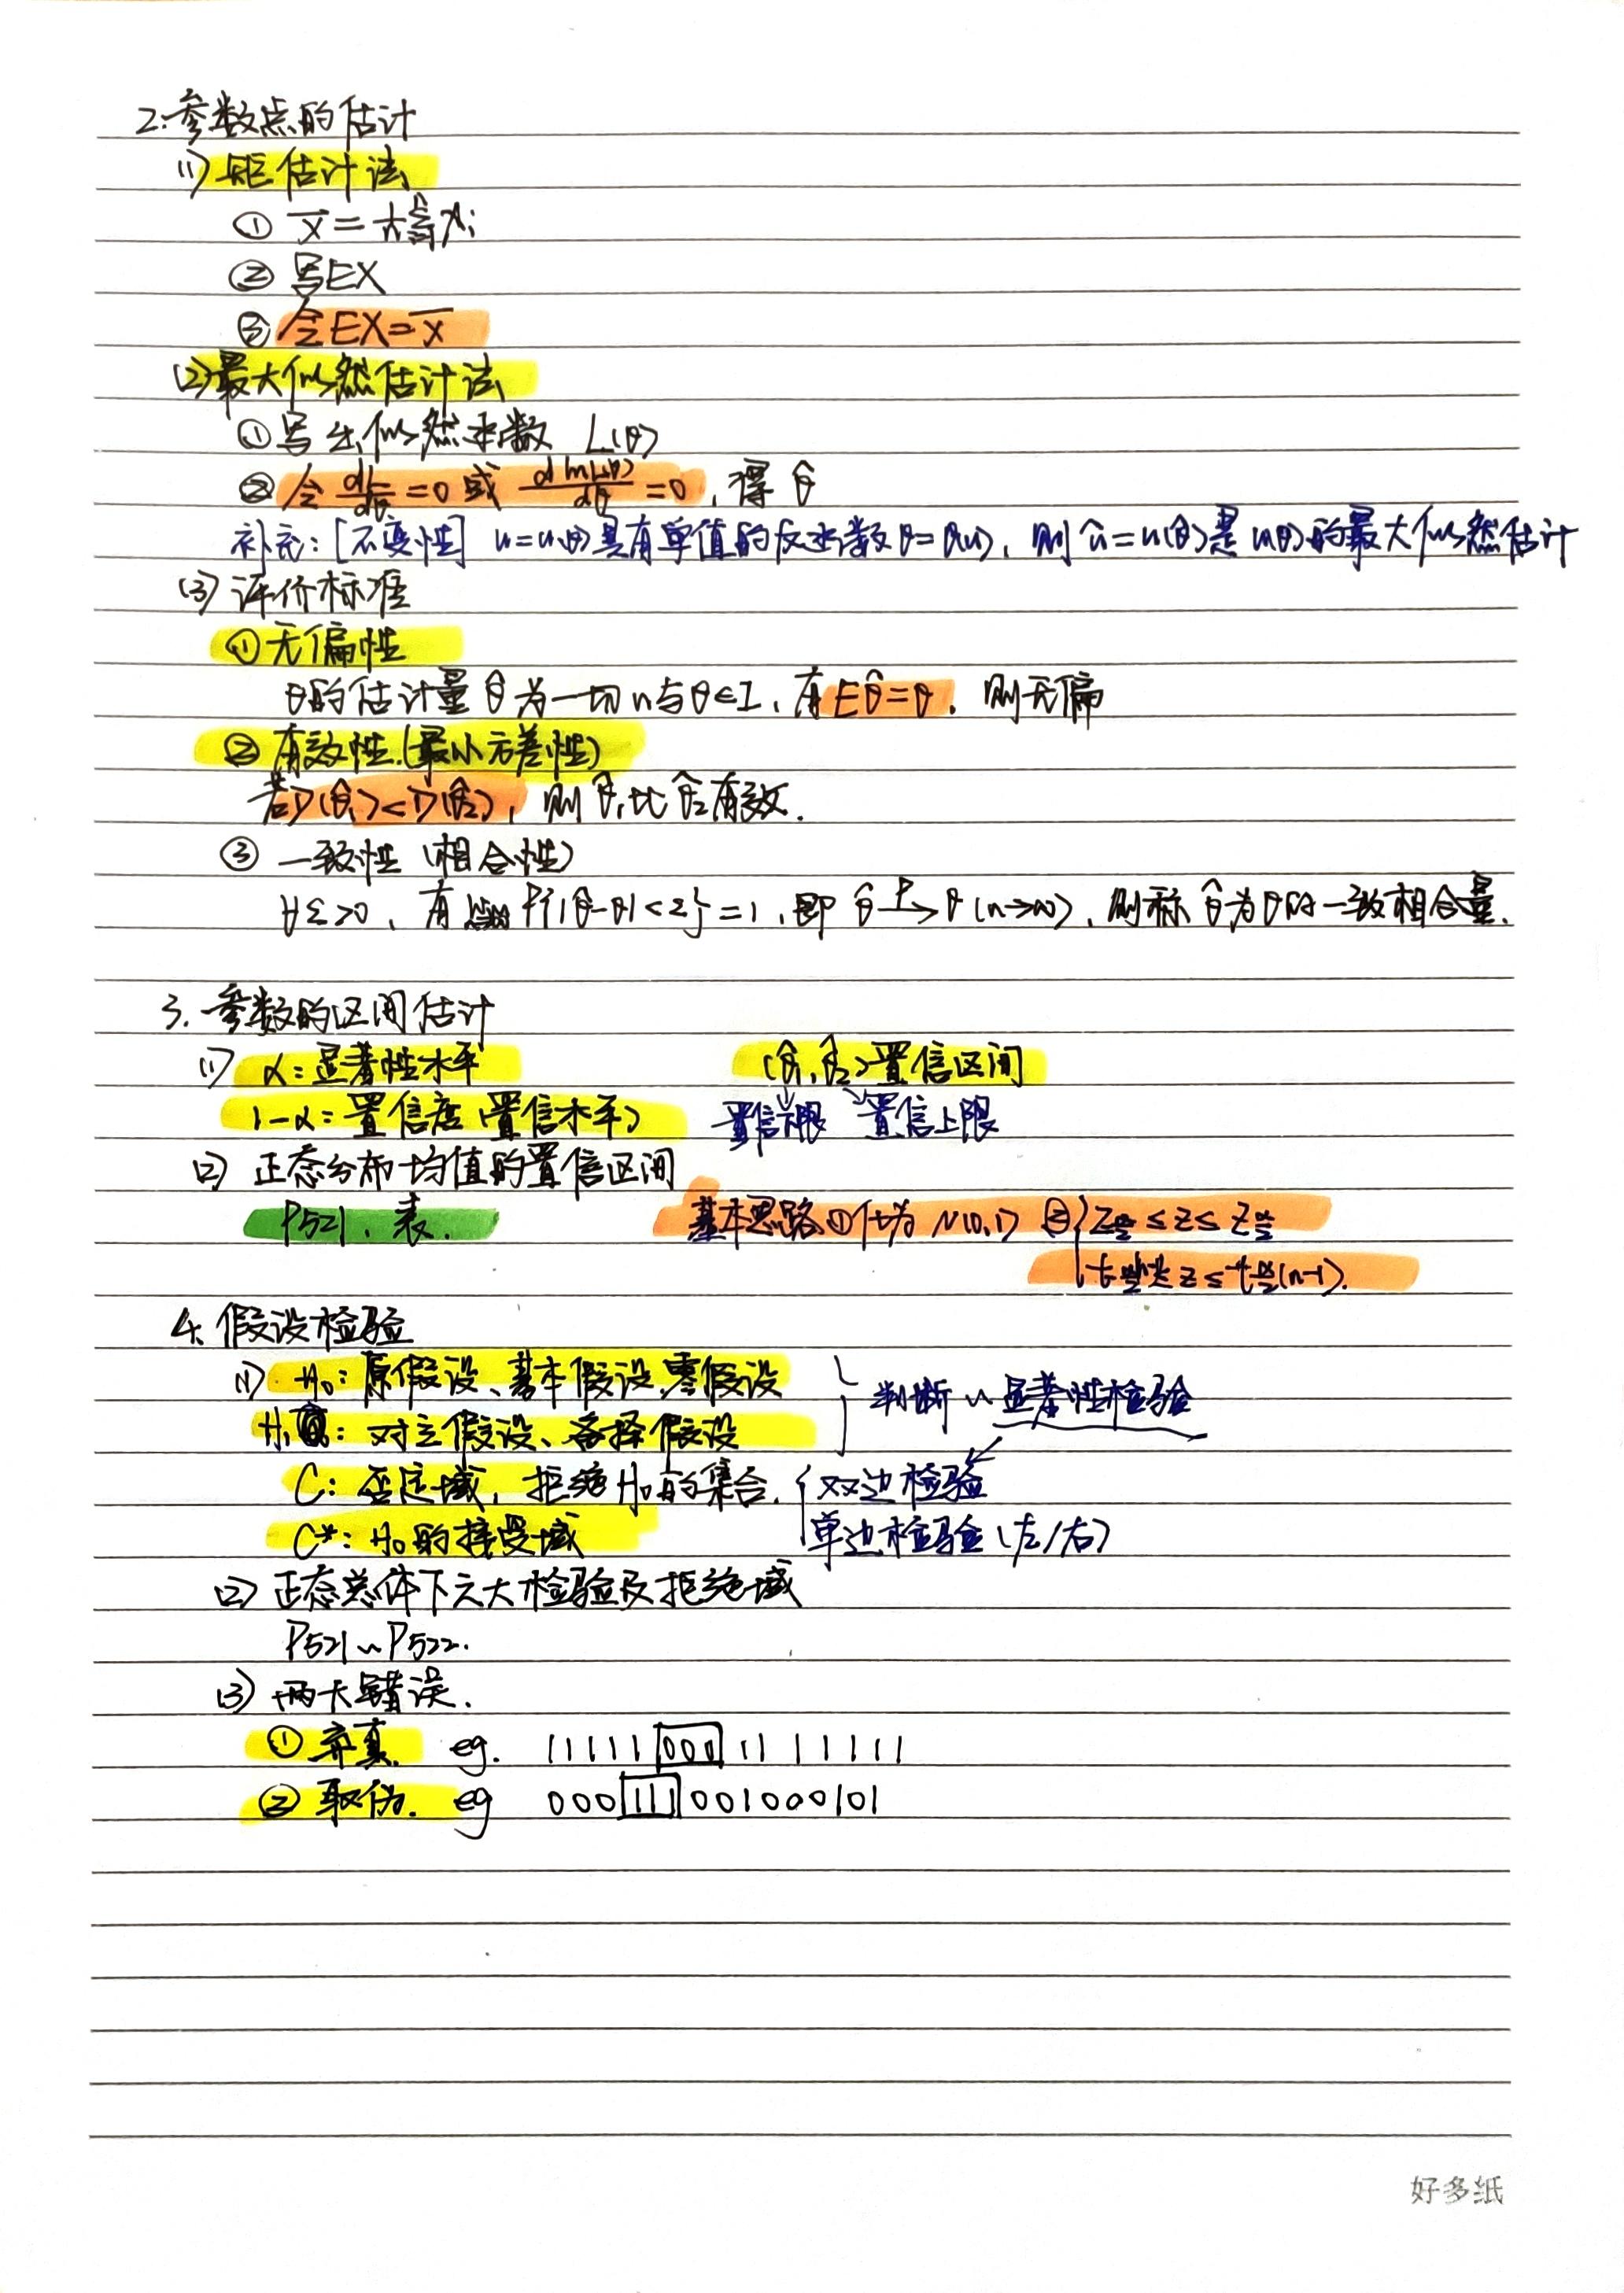 2.参数点的估计
(1) 矩估计法
① x̄ = 1/n Σ(i=1→n) xᵢ
② 写EX
③ 令EX = x̄
(2) 最大似然估计法
① 写出似然函数 L(θ)
② 令 dL/dθ = 0 或 d lnL(θ)/dθ = 0, 得 θ̂
补充: [不变性] u=u(θ)具有单值的反函数θ=θ(u), 则 û=u(θ̂)是u(θ)的最大似然估计
(3) 评价标准
① 无偏性
θ的估计量 θ̂ 为一切n与θ∈I, 有Eθ̂=θ, 则无偏
② 有效性(最小方差性)
若D(θ̂₁)<D(θ̂₂), 则θ̂₁比θ̂₂有效.
③ 一致性 (相合性)
∀ε>0, 有 lim P{|θ̂-θ|<ε}=1, 即 θ̂ →P θ(n→∞), 则称 θ̂为θ的一致相合量.
3. 参数的区间估计
(1) α: 显著性水平 (θ̂₁, θ̂₂)置信区间
1-α: 置信度 (置信水平) 置信下限 置信上限
(2) 正态分布均值的置信区间
P521. 表. 基本思路①化为N(0,1) ② { Zα/2 ≤ Z ≤ Zα/2
≤ Z ≤ tα/2(n-1).
4. 假设检验
(1) H₀: 原假设、基本假设、零假设 } 判断~显著性检验
H₁: 对立假设、备择假设
C: 否定域, 拒绝H₀的集合. { 双边检验
C*: H₀的接受域 单边检验(左/右)
(2) 正态总体下六大检验及拒绝域
P521~P522.
(3) 两大错误.
① 弃真. eg. 11111 000 11 11111
② 取伪. eg 000 111 001000101
好多纸